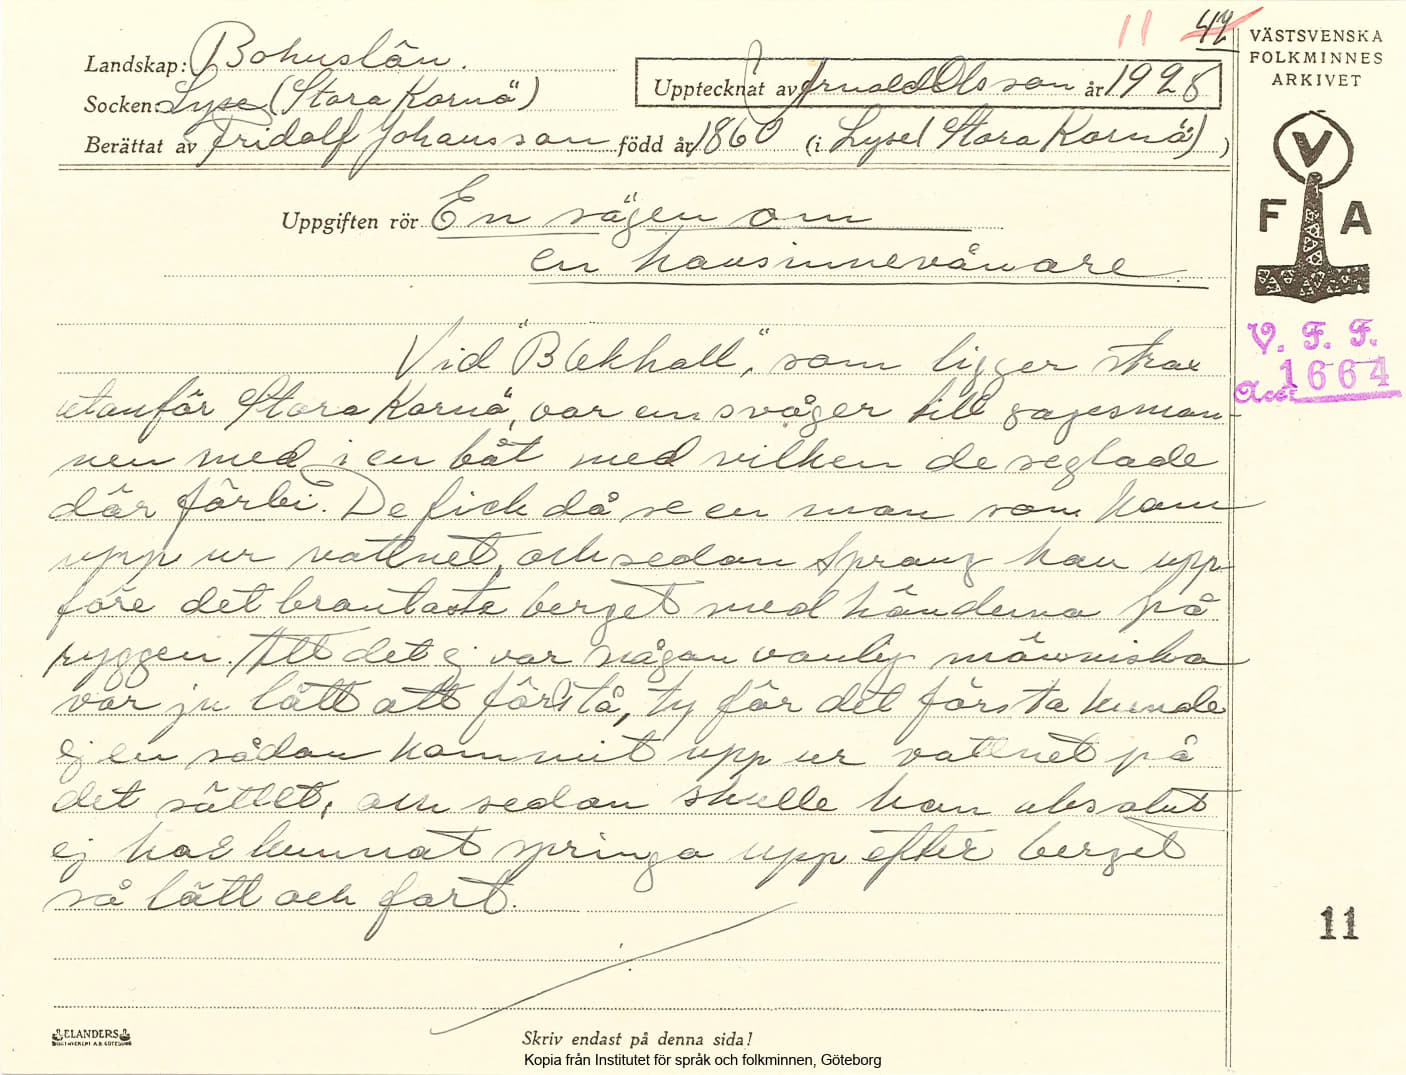 11 42
VÄSTSVENSKA
FOLKMINNES
ARKIVET
Landskap: Bohuslän.
Socken: Lyse (Stora Kornö)
Upptecknat av Arnold Olsson år 1928
Berättat av Fridolf Johansson född år 1860 (i Lyse (Stora Kornö) )
V
F A
Uppgiften rör En sägen om
en havsinnevånare
V. F. F.
Acc: 1664
Vid "Bækhall", som ligger strax
utanför Stora Kornö, var en svåger till sagesman-
nen med i en båt med vilken de seglade
där förbi. De fick då se en man som kom
upp ur vattnet, och sedan sprang han upp-
före det brantaste berget med händerna på
ryggen. Att det ej var någon vanlig människa
var ju lätt att förstå, ty för det första kunde
ej en sådan kommit upp ur vattnet på
det sättet, och sedan skulle han absolut
ej ha kunnat springa upp efter berget
så lätt och fort.
11
ELANDERS
Skriv endast på denna sida!
Kopia från Institutet för språk och folkminnen, Göteborg